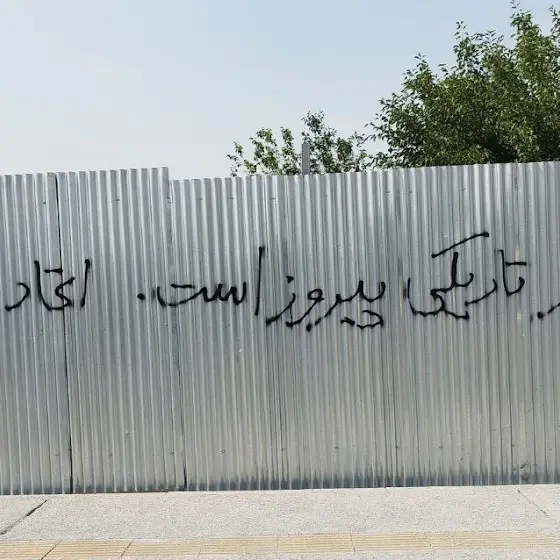 تاریکی پیروز است. اتحاد